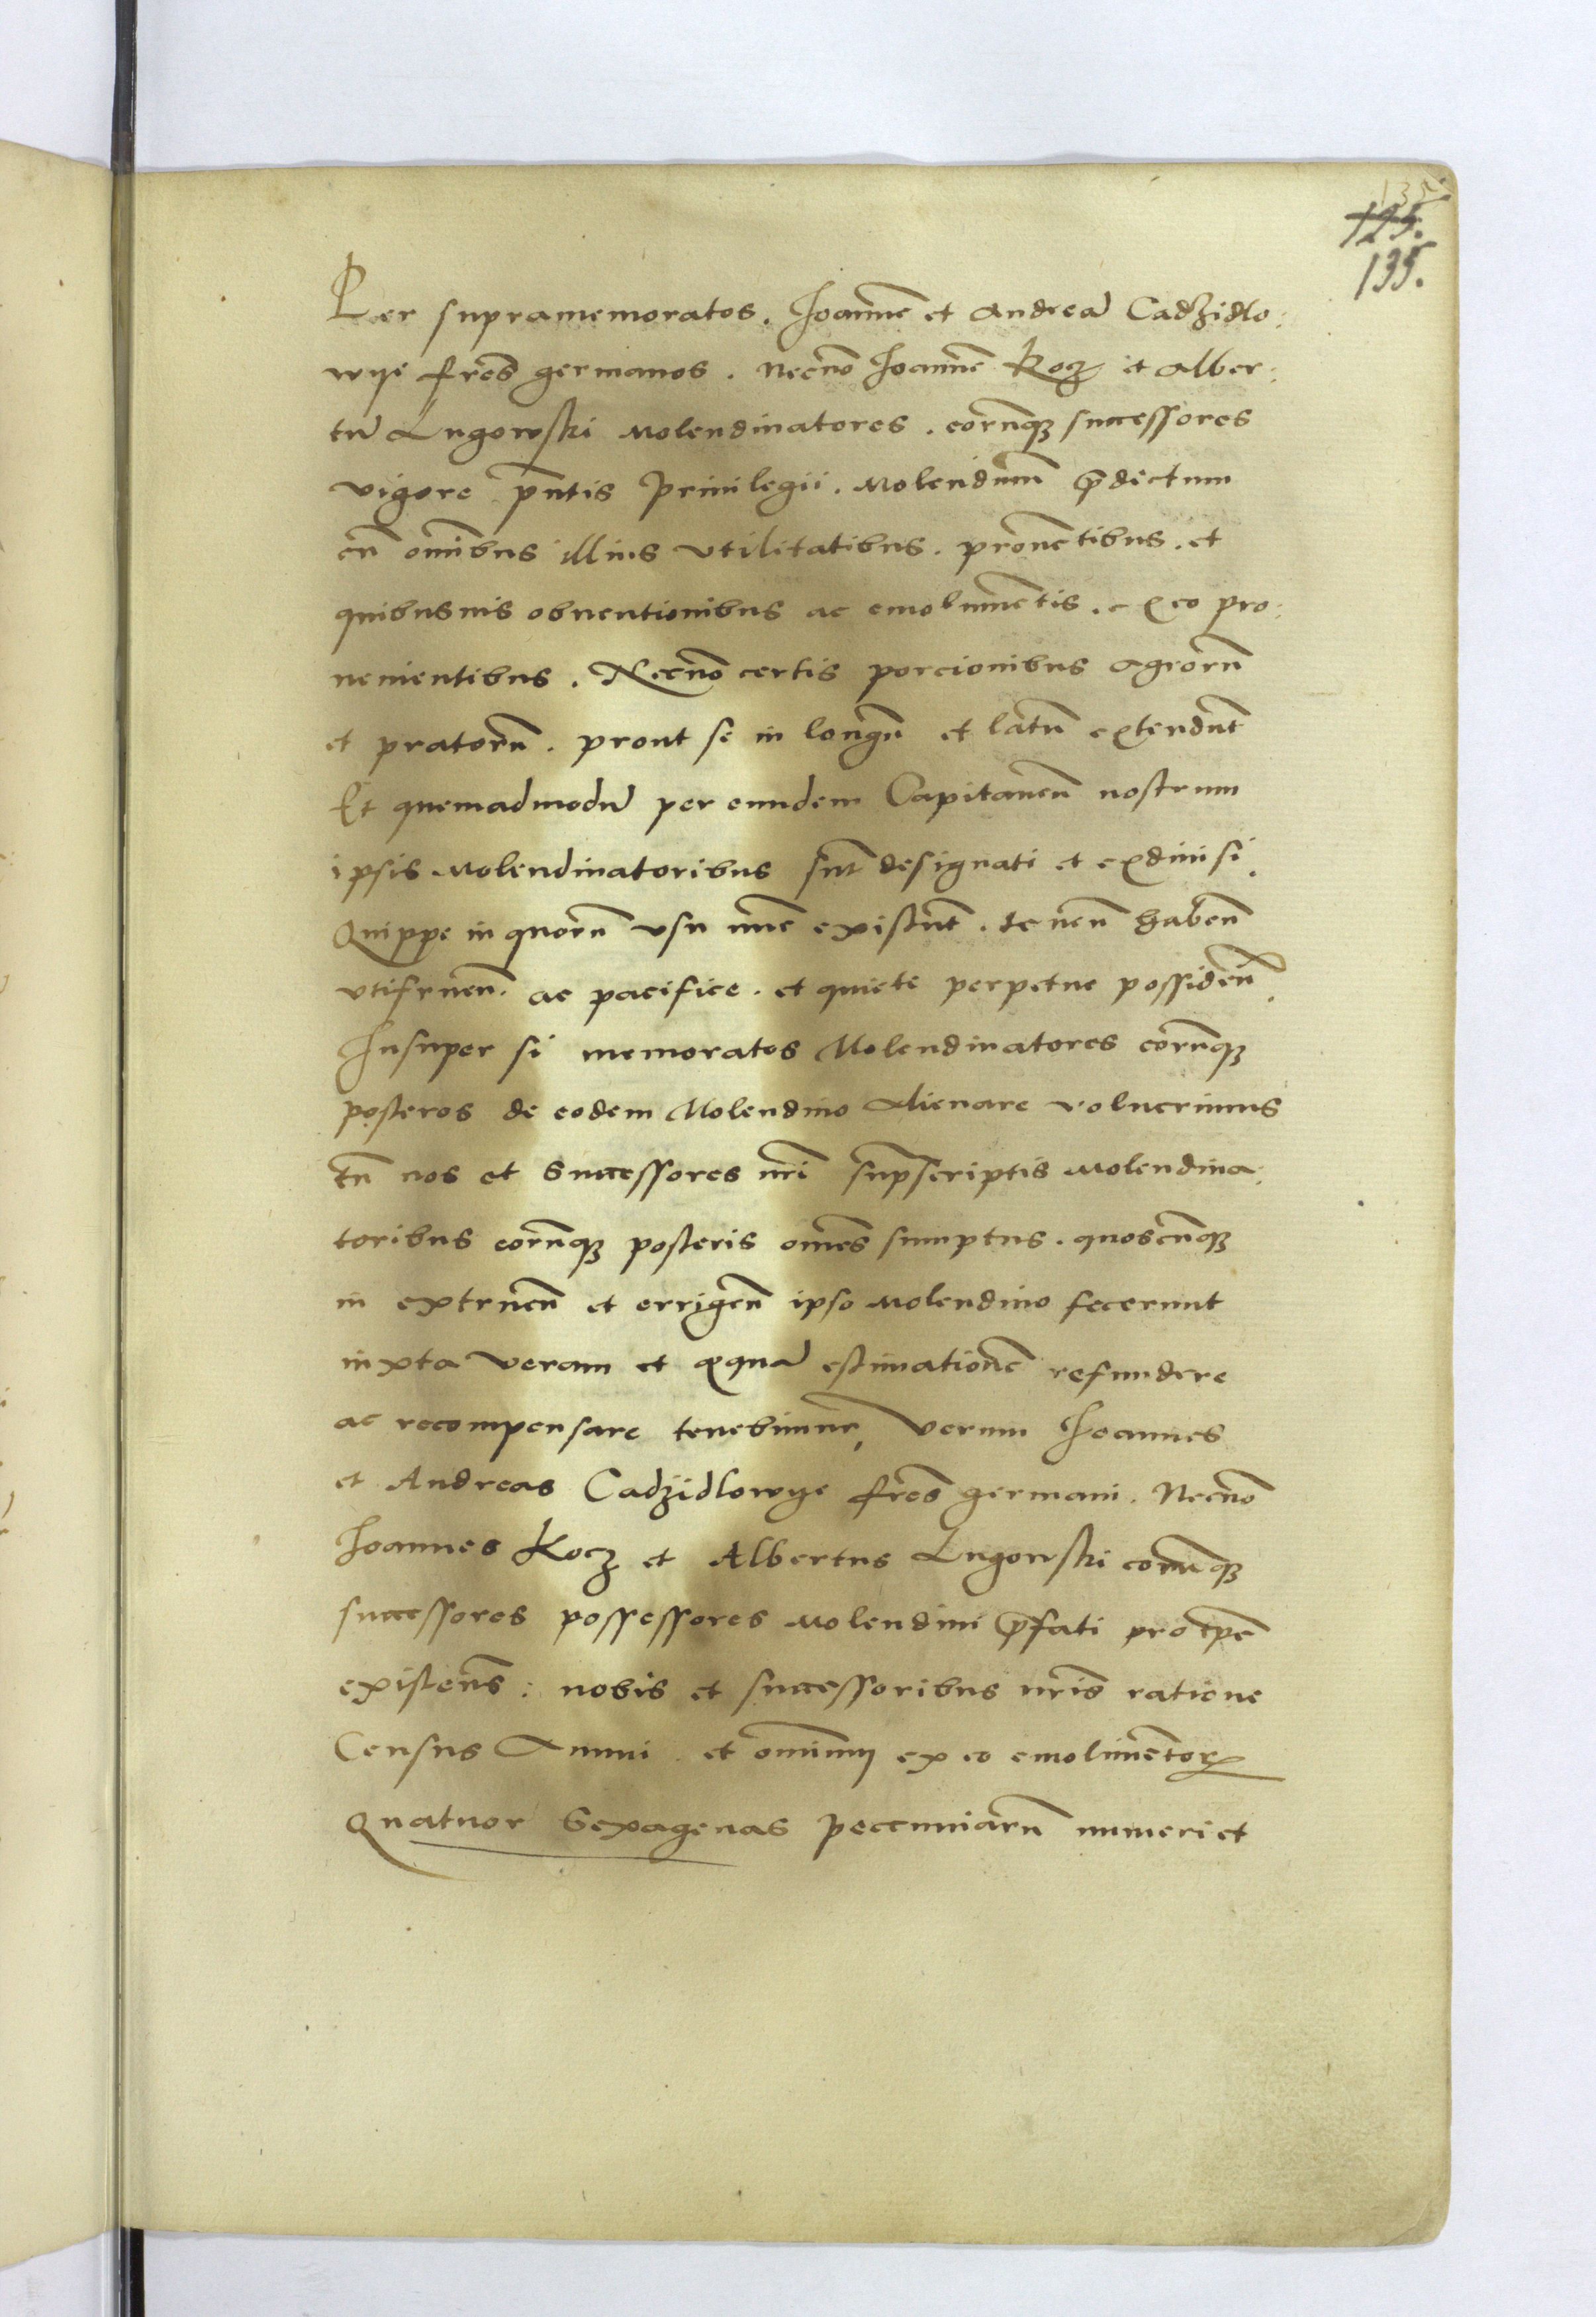 135
125.
135.
Per supramemoratos. Joannē et Andreā Cadzidlo:
wye fres̄ germanos. Necnō Joannē Kocz et Alber:
tū Lugowski Molendinatores. eorūq3 successores
vigore pn̄tis Priuilegii. Molendinū p̄dictum
cū omībus illius vtilitatibus. prouētibus. et
quibusuis obuentionibus ac emolumētis. ex eo pro:
uenientibus. Necnō certis porcionibus agrorū
et pratorū. prout se in longū et latū extendūt
Et quemadmodū per eundem Capitaneū nostrum
ipsis Molendinatoribus sūt designati et exdiuisi.
Quippe in quorū vsu nūc existūt. tenen̄ haben̄
vtifruen̄. ac pacifice. et quiete perpetue possiden̄.
Insuper si memoratos Molendinatores eorūq3
posteros de eodem Molendino Alienare voluerimus
tū nos et Successores nr̄i supscriptis Molendina:
toribus eorūq3 posteris omēs sumptus. quoscūq3
in extruen̄ et errigen̄ ipso Molendino fecerunt
iuxta veram et equā estimationē refundere
ac recompensare tenebimur, Verum Joannes
et Andreas Cadzidlowye fres̄ germani. Necnō
Joannes Kocz et Albertus Lugowski eorūq3
successores possessores Molendini p̄fati pro tp̄e
existen̄s: nobis et successoribus nr̄is ratione
Census Annui. et omniū ex eo emolimētorꝝ
Quatuor Sexagenas peccuniarū numeri et